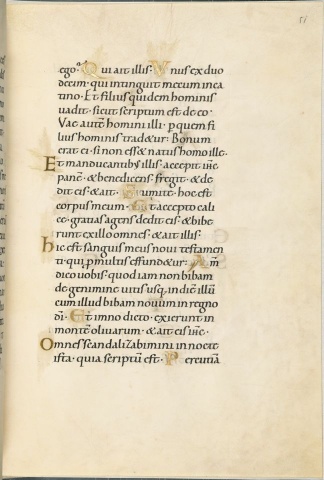 51
ego? Qui ait illis. Vnus ex duo
decim. qui intinguit mecum in ca
tino. Et filius quidem hominis
vadit. sicut scriptum est de eo.
Vae autē homini illi. p quem fi
lius hominis tradetur: Bonum
erat ei. si non esset natus homo ille.
Et manducantibus illis. accepit ihc
panē. & benedicens fregit. & de
dit eis. & ait. Sumite. hoc est
corpus meum. Et accepto cali
ce. gratias agens dedit eis. & bibe
runt ex illo omnes. & ait illis.
hic est sanguis meus noui testamen
ti. qui p multis effundetur. Am̄
dico uobis. quod iam non bibam
de genimine uitis usq; in diē illū
cum illud bibam nouum in regno
dī. Et imno dicto. exierunt in
montē oliuarum. & ait eis ihc.
Omnes scandalizabimini in nocte
ista. quia scriptū est. Percutiā